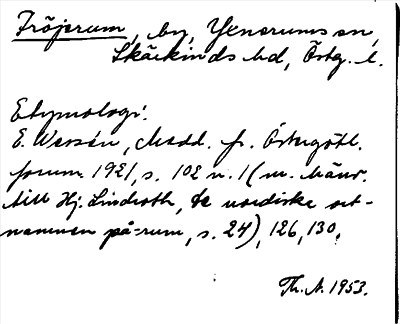 Fröjerum, by, Yxnerums sn,
Skärkinds hd, Östg. l.
Etymologi:
E. Wessén, Medd. fr. Östergötl.
forum 1921, s. 102 n. 1 (m. hänv.
till Hj. Lindroth, De nordiske ort-
namnen på -rum, s. 24), 126, 130.
Th. A. 1953.